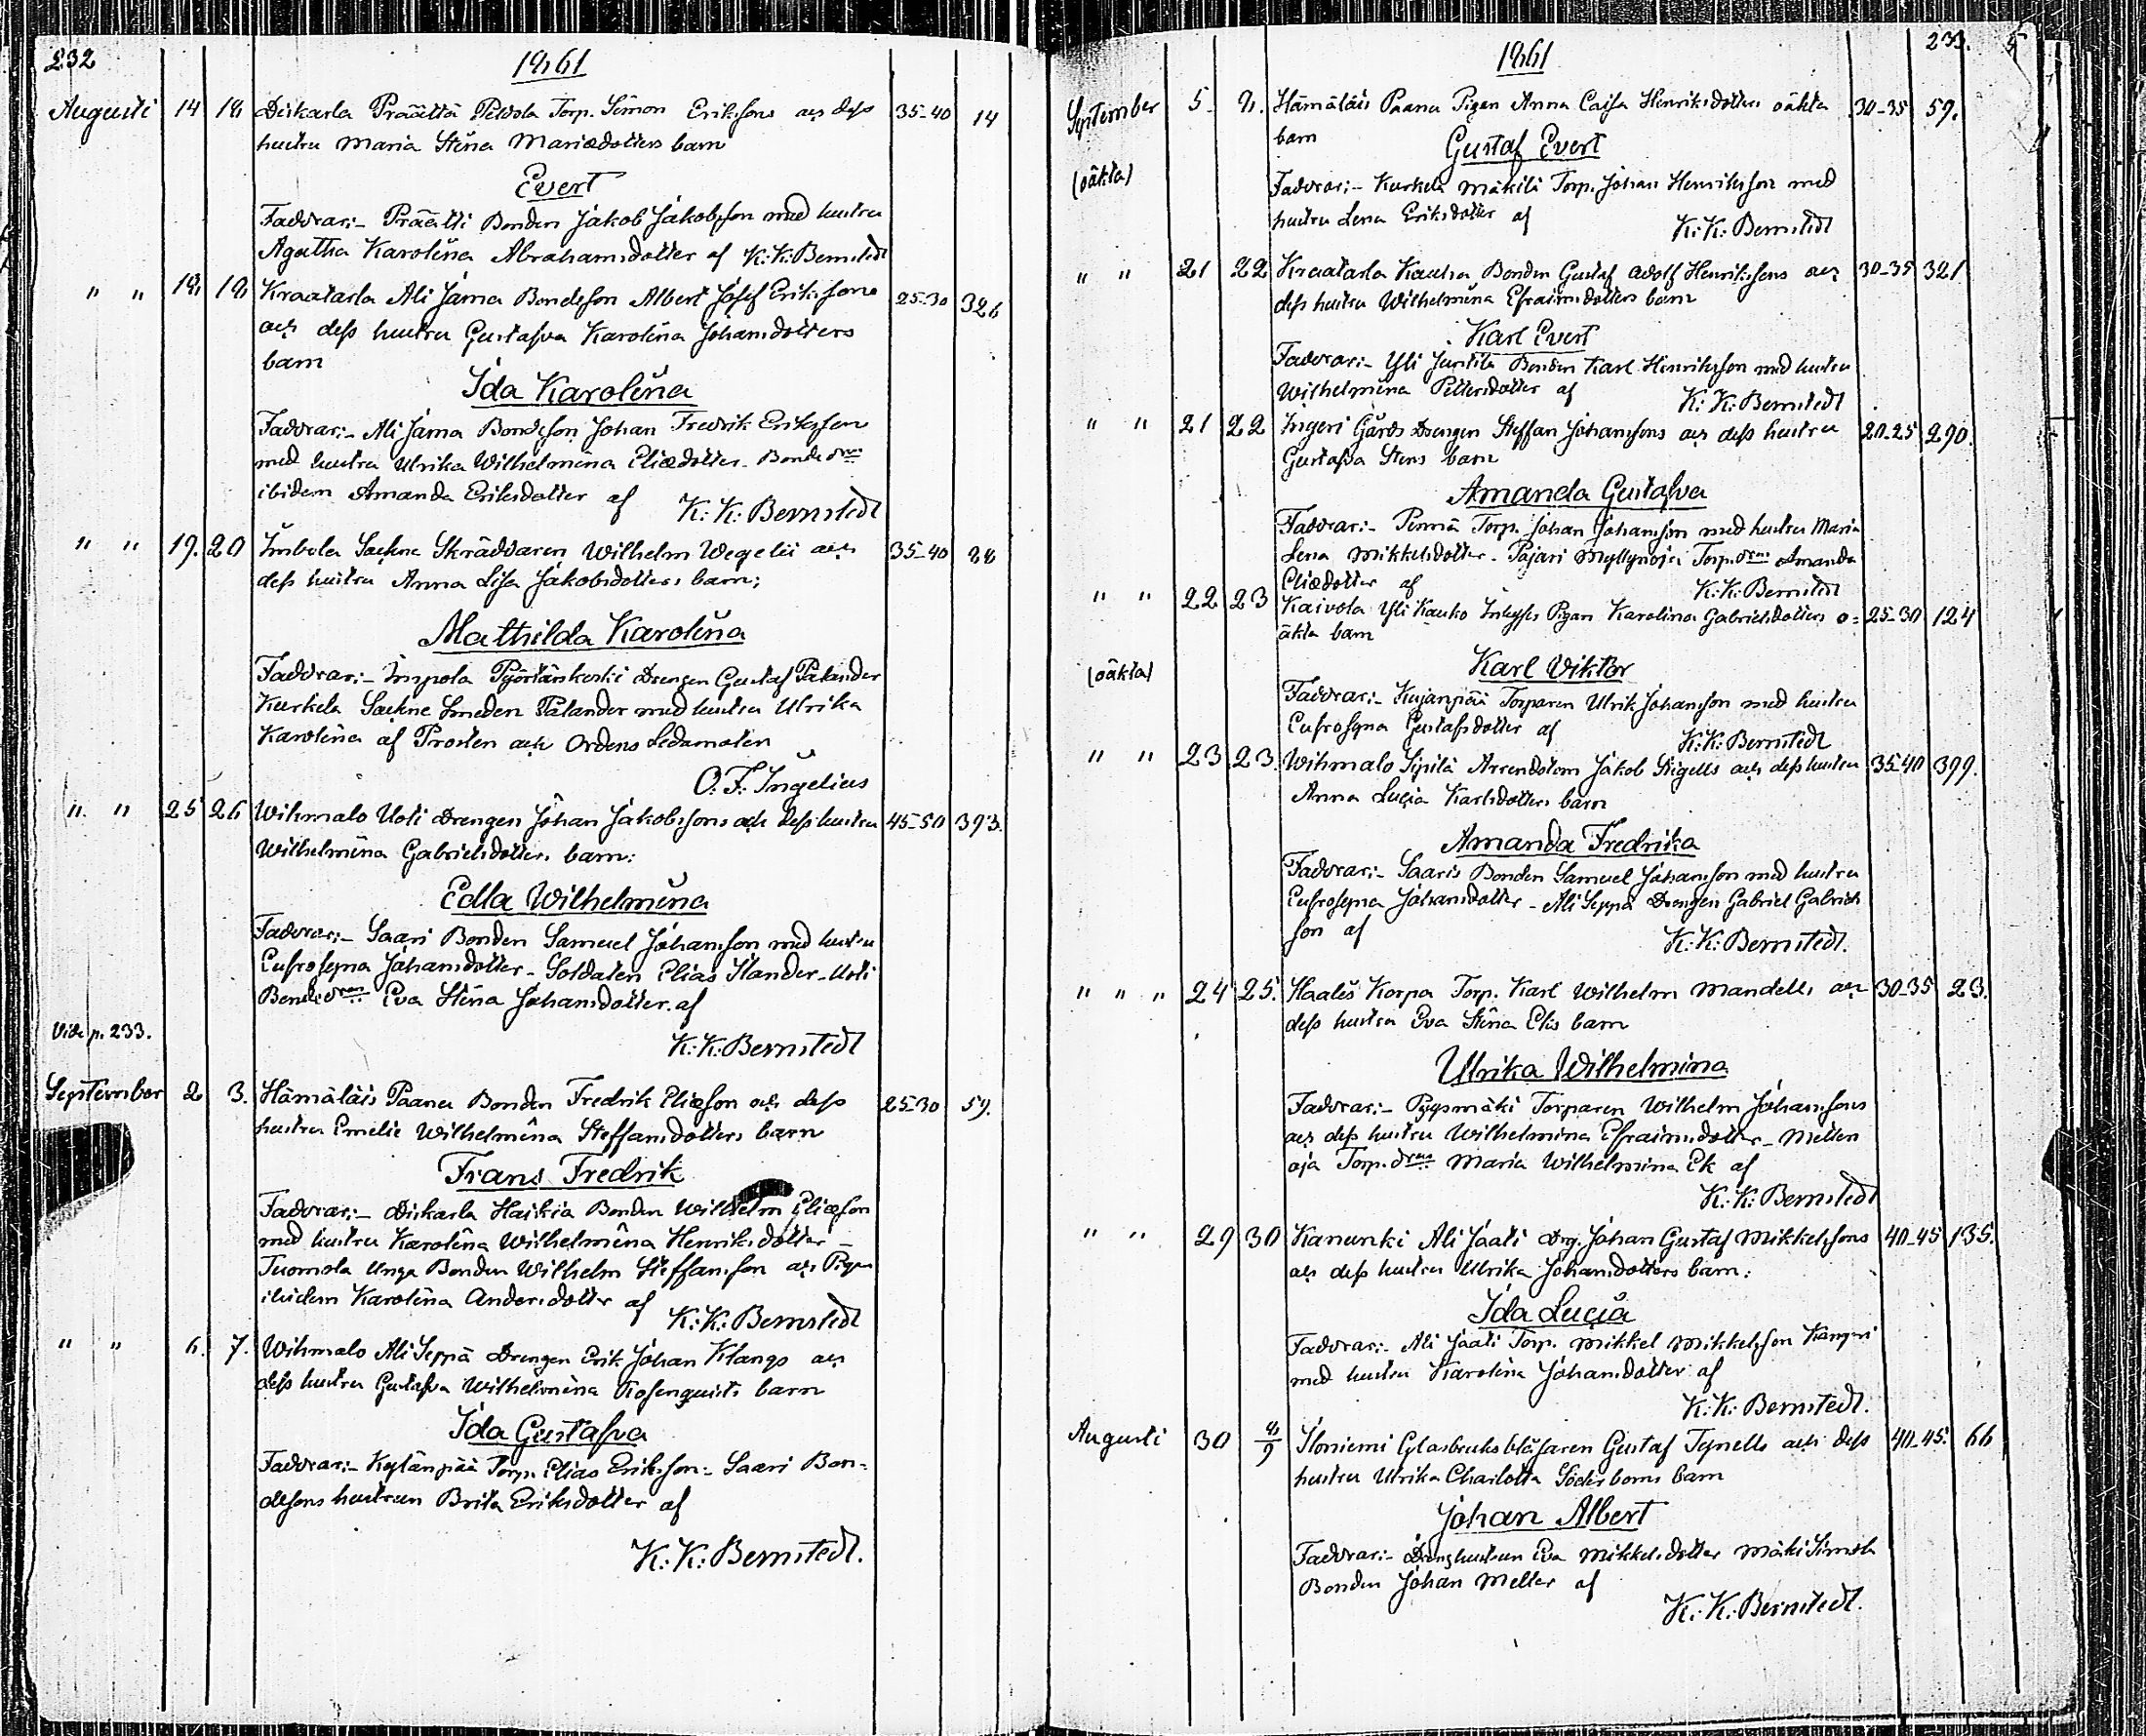 232
1861
Augusti 14 18 Diskarla Präättä Peldola Torp. Simon Erikssons och dess 35-40 14
hustru Maria Stina Mariædotters barn
Evert
Faddrar:- Präätti Bonden Jakob Jakobsson med hustru
Agatha Karolina Abrahamsdotter af K: K: Bernstedt
" " 18 18 Kraatarla Ali Jama Bondeson Albert Josef Erikssons 25-30 326
och dess hustru Gustafva Karolina Johansdotters
barn
Ida Karolina
Faddrar:- Ali Jama Bondeson Johan Fredrik Eriksson
med hustru Ulrika Wilhelmina Eliædotter - Bondedrn
ibidem Amanda Eriksdotter af K: K: Bernstedt
" " 19. 20 Imbola Sachne Skräddaren Wilhelm Wegelii och 35-40 28
dess hustru Anna Lisa Jakobsdotters barn;
Mathilda Karolina
Faddrar:- Impola Pyörtänkoski Drengen Gustaf Palander
Kurkela Sachne Smeden Palander med hustru Ulrika
Karolina af Prosten och Ordens Ledamoten
O. F. Ingelius
" " 25 26 Wihmalo Uoti Drengen Johan Jakobssons och dess hustru 45-50 393.
Wilhelmina Gabrielsdotters barn:
Edla Wilhelmina
Faddrar:- Saari Bonden Samuel Johansson med hustru
Eufrosyna Johansdotter - Soldaten Elias Slander - Uoti
Bondedrn Eva Stina Johansdotter. af
Vide p. 233.
K: K: Bernstedt
September 2 3. Hämäläis Paanu Bonden Fredrik Eliæson och dess 25-30 59.
hustru Emelie Wilhelmina Steffansdotters barn
Frans Fredrik
Faddrar:- Diskarla Haikia Bonden Wilhelm Eliæson
med hustru Karolina Wilhelmina Henriksdotter -
Tuomola Unga Bonden Wilhelm Steffansson och Pigan
ibidem Karolina Andersdotter af K: K: Bernstedt
" " 6. 7. Wihmalo Ali Seppä Drengen Erik Johan Klangs och
dess hustru Gustafva Wilhelmina Rosenquists barn
Ida Gustafva
Faddrar:- Kylänpää Torp. Elias Eriksson - Saari Bon-
desons hustrun Brita Eriksdotter af
K: K: Bernstedt.
233.
1861
September 5. 8. Hämäläis Paanu Pigan Anna Caisa Henriksdotters oäkta 30-35 59.
barn
Gustaf Evert
(oäkta)
Faddrar:- Kurkela Mäkilä Torp. Johan Henriksson med
hustru Lena Eriksdotter af
K: K: Bernstedt
" " 21 22 Kraatarla Kauha Bonden Gustaf Adolf Henrikssons och 30-35 321
dess hustru Wilhelmina Efraimsdotters barn
Karl Evert
Faddrar:- Yli Juntila Bonden Karl Henriksson med hustru
Wilhelmina Pettersdotter af
K: K: Bernstedt
" " 21 22 Ingeri Gårds Drengen Steffan Johanssons och dess hustru 20-25 290.
Gustafva Stens barn
Amanda Gustafva
Faddrar:- Torp. Johan Johansson med hustru Maria
Lena Mikkelsdotter - Pajari Myllynoja Torp.drn Amanda
Eliædotter af
K: K: Bernstedt
" " 22 23 Kaivola Yli Kauko Inhyses Pigan Karolina Gabrielsdotters o= 25-30 124
äkta barn
Karl Viktor
(oäkta)
Faddrar:- Kujanpää Torparen Ulrik Johansson med hustru
Eufrosyna Gustafsdotter af
K: K: Bernstedt
" " 23 23. Wihmalo Sipilä Arrendatorn Jakob Stigells och dess hustru 35-40 399.
Anna Lucia Karlsdotters barn
Amanda Fredrika
Faddrar:- Saaris Bonden Samuel Johansson med hustru
Eufrosyna Johansdotter - Ali Seppä Drengen Gabriel Gabriels
son af
K: K: Bernstedt.
" " " 24 25. Haalis Korpa Torp. Karl Wilhelm Mandells och 30-35 23.
dess hustru Eva Stina Eks barn
Ulrika Wilhelmina
Faddrar:- Pyysmäki Torparen Wilhelm Johanssons
och dess hustru Wilhelmina Efraimsdotter - Metten
oja Torp.drn Maria Wilhelmina Ek af
K: K: Bernstedt
" " 29 30 Kanunki Ali Jaati Drg. Johan Gustaf Mikkelssons 40-45 135.
och dess hustru Ulrika Johansdotters barn:
Ida Lucia
Faddrar:- Ali Jaati Torp. Mikkel Mikkelsson Kangeri
med hustru Karolina Johansdotter af
K: K: Bernstedt.
Augusti 30 8/9 Iloniemi Glasbruks blåsaren Gustaf Tynells och dess 40-45. 66
hustru Ulrika Charlotta Söderboms barn
Johan Albert
Faddrar:- Drenghustrun Eva Mikkelsdotter Mäki Simola
Bonden Johan Meller af
K: K: Bernstedt.